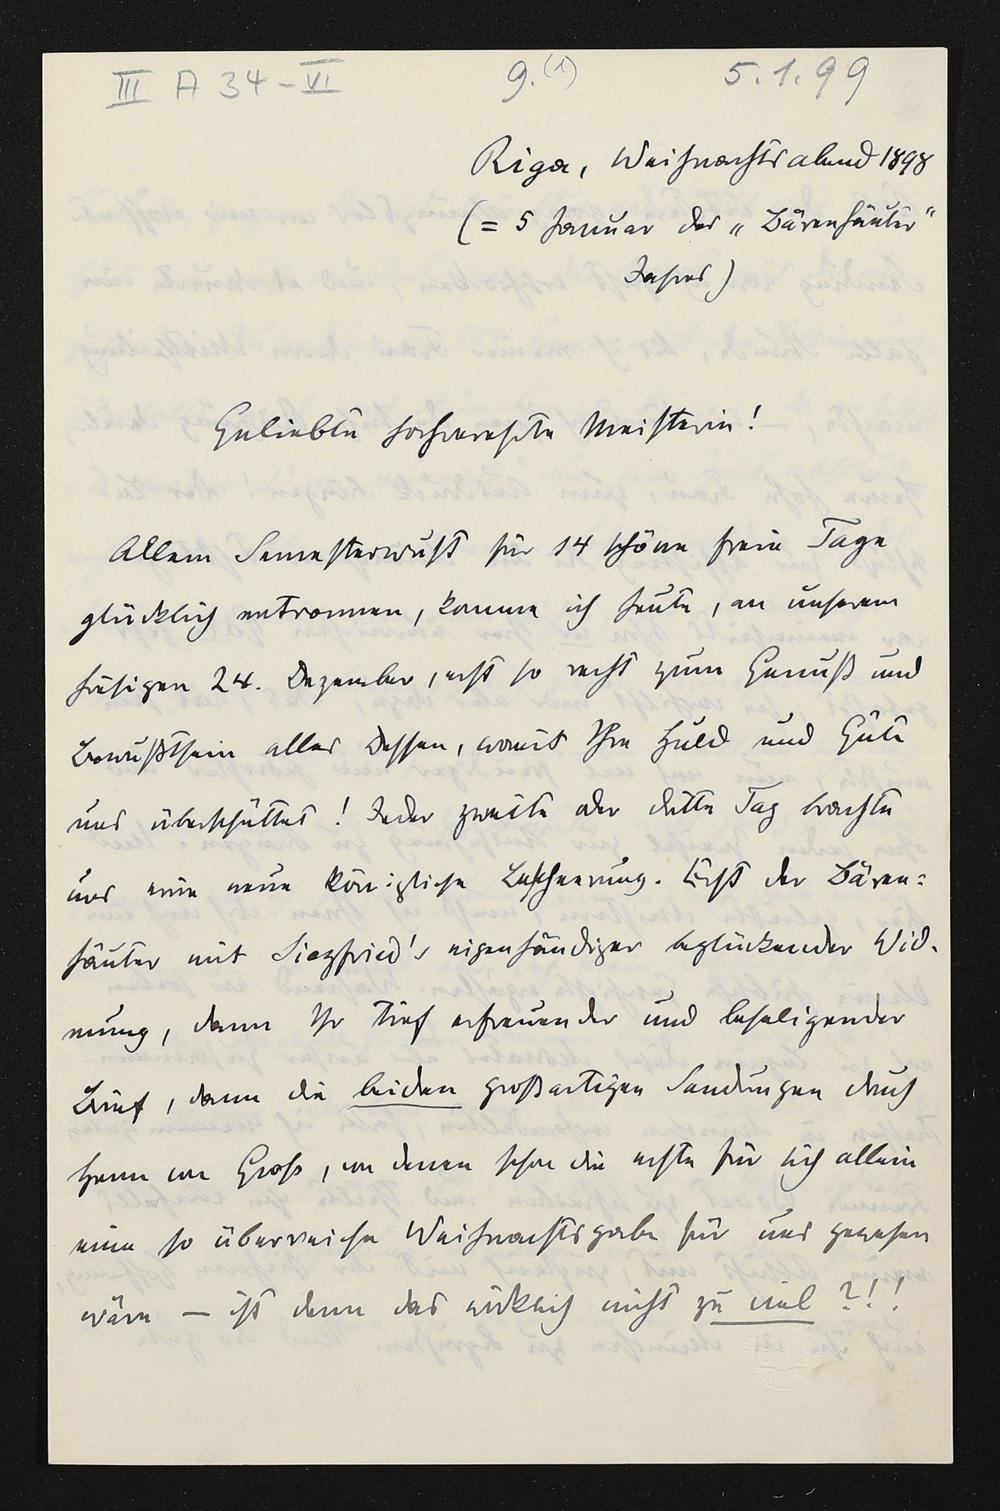 III A 34 - VI 9.(1) 5.1.99
Riga, Weihnachtsabend 1898
(= 5 Januar des „Bärenhäuter"
Jahres)
Geliebte hochverehrte Meisterin!
Allem Semesterwust für 14 schöne freie Tage
glücklich entronnen, komme ich heute, an unserem
hiesigen 24. Dezember, erst so recht zum Genuß und
Bewußtsein alles Dessen, womit Ihre Huld und Güte
uns überschüttet! Jeder zweite oder dritte Tag brachte
uns eine neue königliche Bescheerung. Erst der Bären=
häuter mit Siegfried's eigenhändiger beglückender Wid-
mung, dann Ihr tief erfreuender und beseligender
Brief, dann die beiden großartigen Sendungen durch
Herrn von Groß, von denen schon die erste für sich allein
eine so überreiche Weihnachtsgabe für uns gewesen
wäre — ist denn das wirklich nicht zu viel ?!!